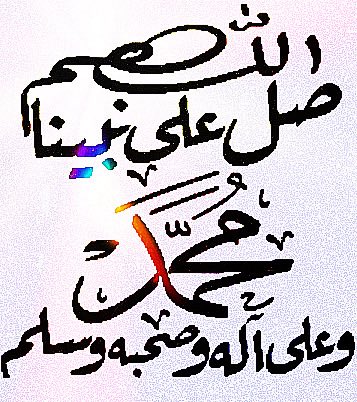 اللهم
صل على نبينا
محمد
وعلى آله وصحبه وسلم